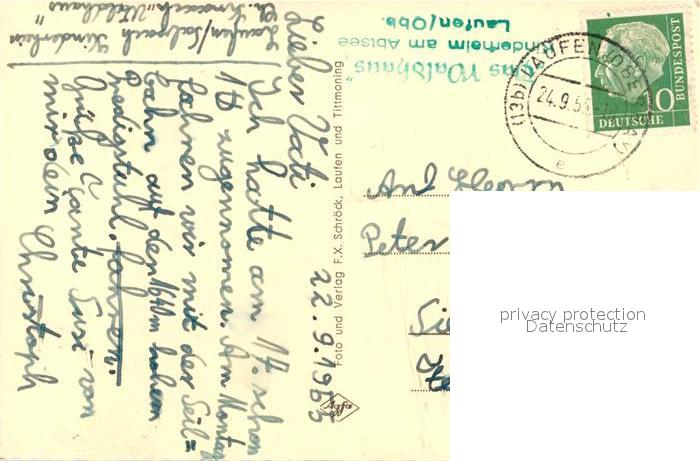 Laufen/Salzach Kinderheim
Ch. "Waldhaus"
22.9.1955
Lieber Vati
Ich hatte am 17. schon
1 ℔ zugenommen. Am Montag
fahren wir mit der Seil=
bahn auf den 1640m hohen
Predigtstuhl. fahren.
Grüße Tante Susi von
mir dein
Christoph
Foto und Verlag F.X. Schröck, Laufen und Tittmoning
Agfa
"Das Waldhaus"
Kinderheim am Abtsee
Laufen/Obb.
(13b) LAUFEN (OBERBAY)
24.9.55
e
10
DEUTSCHE
BUNDESPOST
An
Peter
privacy protection
Datenschutz